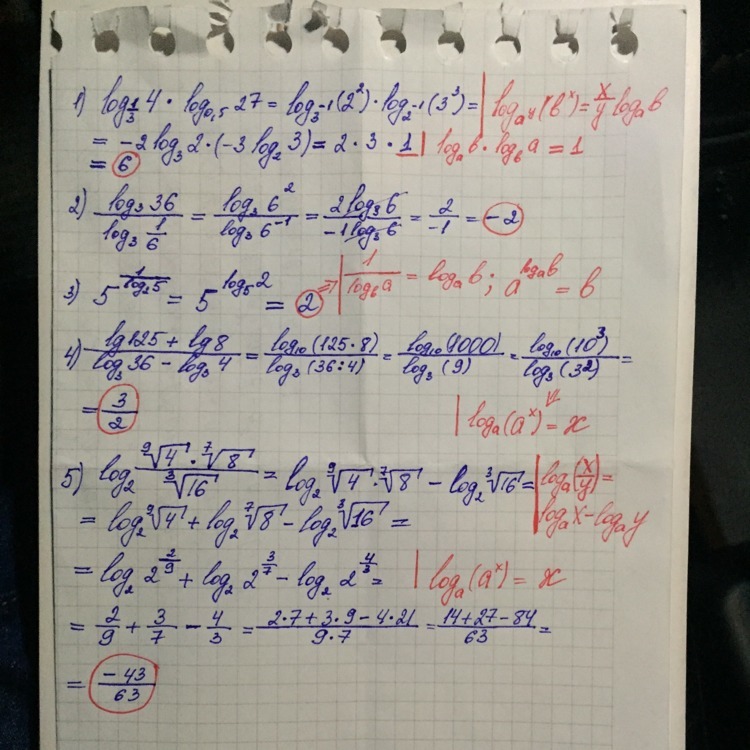 1) log_{1/3} 4 · log_{0,5} 27 = log_{3^{-1}} (2^2) · log_{2^{-1}} (3^3) = | log_{a^y} (b^x) = x/y log_a b
= -2 log_3 2 · (-3 log_2 3) = 2 · 3 · 1 | log_a b · log_b a = 1
= 6
2) log_3 36 / log_3 1/6 = log_3 6^2 / log_3 6^{-1} = 2 log_3 6 / -1 log_3 6 = 2 / -1 = -2
3) 5^{1/log_2 5} = 5^{log_5 2} = 2 => | 1/log_b a = log_a b ; a^{log_a b} = b
4) lg 125 + lg 8 / log_3 36 - log_3 4 = log_{10} (125 · 8) / log_3 (36 : 4) = log_{10} (1000) / log_3 (9) = log_{10} (10^3) / log_3 (3^2) =
= 3/2 | log_a (a^x) = x
5) log_2 ⁹√4 · ⁷√8 / ³√16 = log_2 ⁹√4 · ⁷√8 - log_2 ³√16 = | log_a (x/y) =
= log_2 ⁹√4 + log_2 ⁷√8 - log_2 ³√16 = log_a x - log_a y
= log_2 2^{2/9} + log_2 2^{3/7} - log_2 2^{4/3} = | log_a (a^x) = x
= 2/9 + 3/7 - 4/3 = 2·7 + 3·9 - 4·21 / 9·7 = 14 + 27 - 84 / 63 =
= -43/63